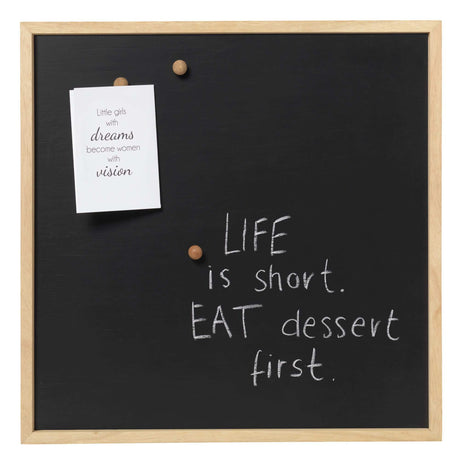 Little girls
with
dreams
become women
with
vision
LIFE
is short.
EAT dessert
first.